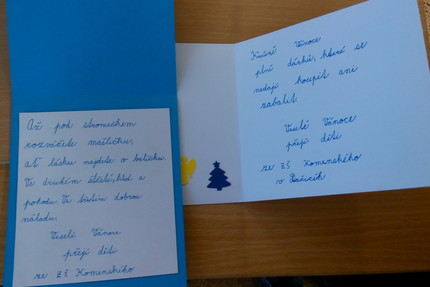 Až pod stromečkem
rozvážete mašličku,
ať lásku najdete v balíčku.
Ve druhém štěstí, klid a
pohodu. Vá dobrou
náladu.
Veselé Vánoce
přejí děti
ze ZŠ Komenského
Krásné Vánoce
plné dárků, které se
nedají koupit ani
zabalit.
Veselé Vánoce
přejí děti
ze ZŠ Komenského
v